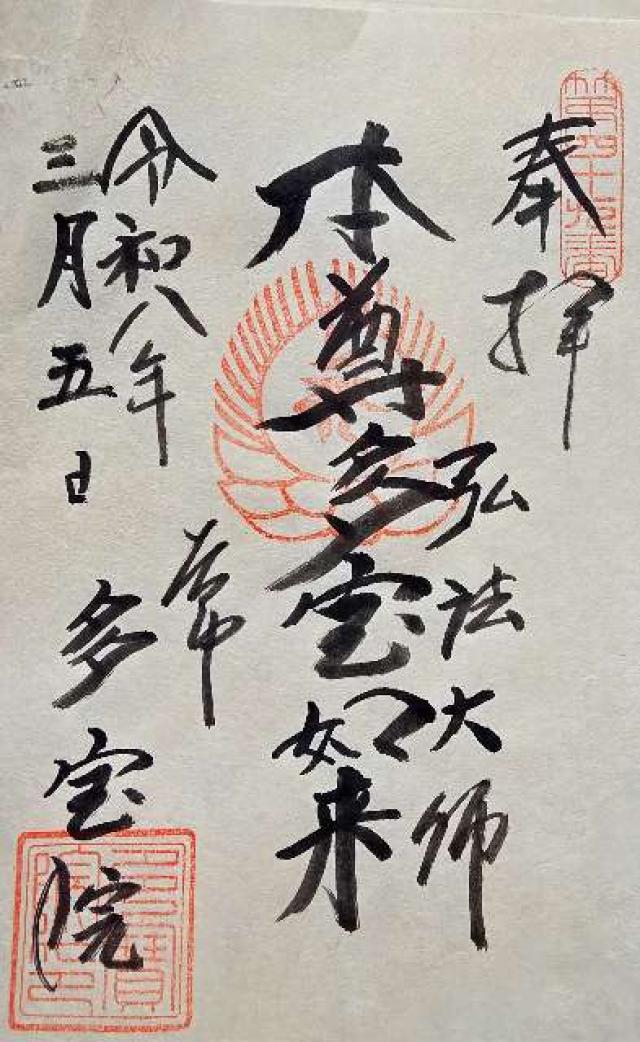 奉拝
本尊多宝如来
弘法大師
令和八年
三月五日
多宝院